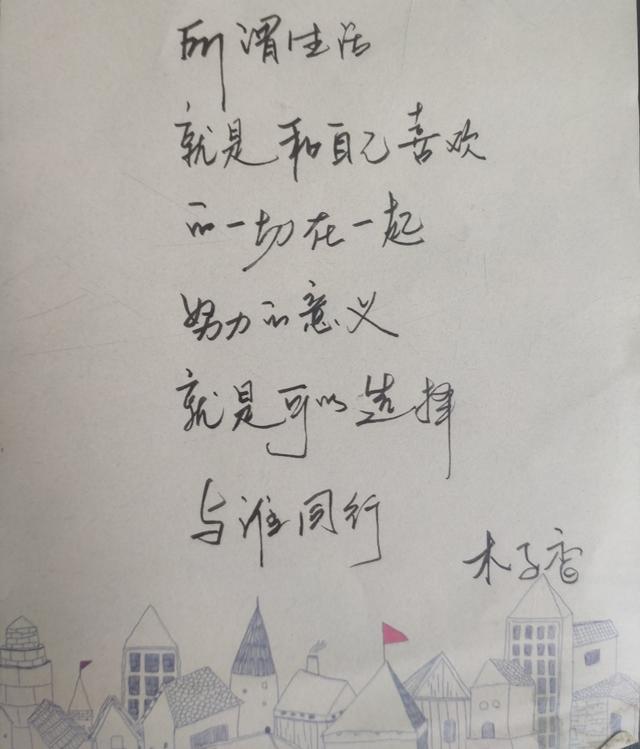 所谓生活
就是和自己喜欢
的一切在一起
努力的意义
就是可以选择
与谁同行
木子香